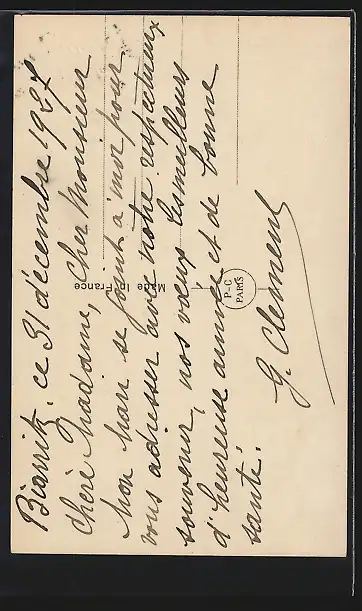 Biarritz. ce 31 décembre 1927
Chère Madame, Cher Monsieur
Mon Mari se joint à moi pour
vous adresser avec notre respectueux
souvenir, nos vœux les meilleurs
d'heureuse année et de bonne
santé.
G. Clement
Made in France
P-C
PARIS